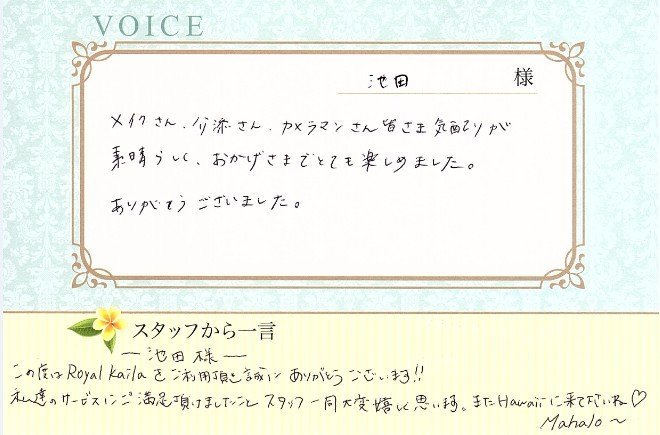 VOICE
池田 様
メイクさん、介添さん、カメラマンさん皆さま気配りが
素晴らしく、おかげさまでとても楽しめました。
ありがとうございました。
スタッフから一言
― 池田 様 ―
この度はRoyal Kailaをご利用頂き誠に ありがとうございます!!
私達のサービスにご満足頂けましたこと スタッフ一同大変嬉しく思います。またHawaiiに来て下さいね♡
Mahalo~